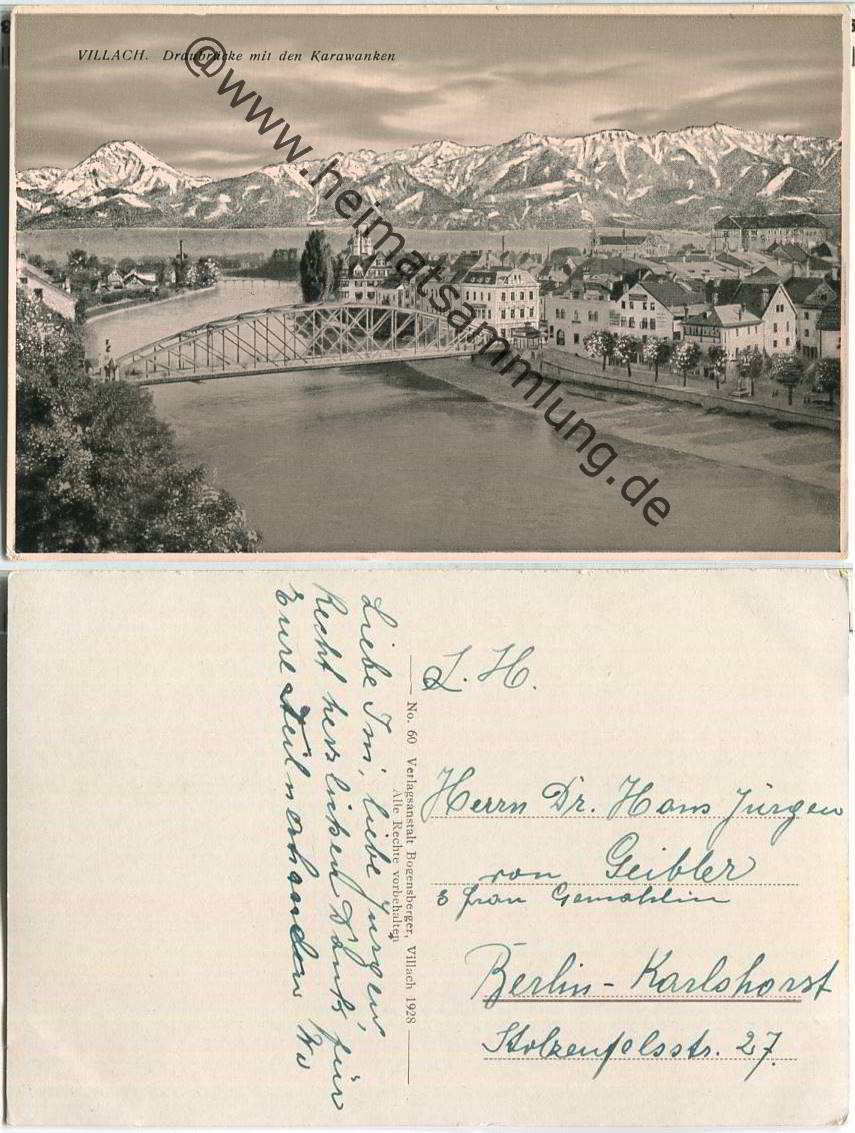 VILLACH. Draubrücke mit den Karawanken
@www.heimatsammlung.de
Liebe Imi, liebe Jürgen
Recht herzlichen Dank für
Eure
No. 60 Verlagsanstalt Bogensberger, Villach 1928
Alle Rechte vorbehalten
L. H.
Herrn Dr. Hans Jürgen
von Geibler
& Frau Gemahlin
Berlin-Karlshorst
Stolzenfelsstr. 27.